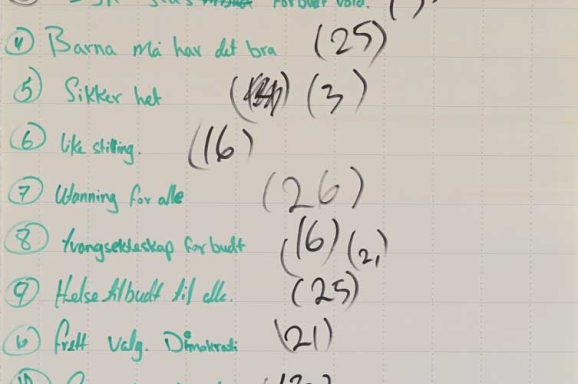 forbudt vold. ( )
④ Barna må har det bra (25)
⑤ Sikker het (3)
⑥ like stilling. (16)
⑦ Utanning for alle (26)
⑧ tvangsekteskap forbudt (16) (21
⑨ Helse tilbudt til alle. (25)
fritt valg. Dimokrati (21)